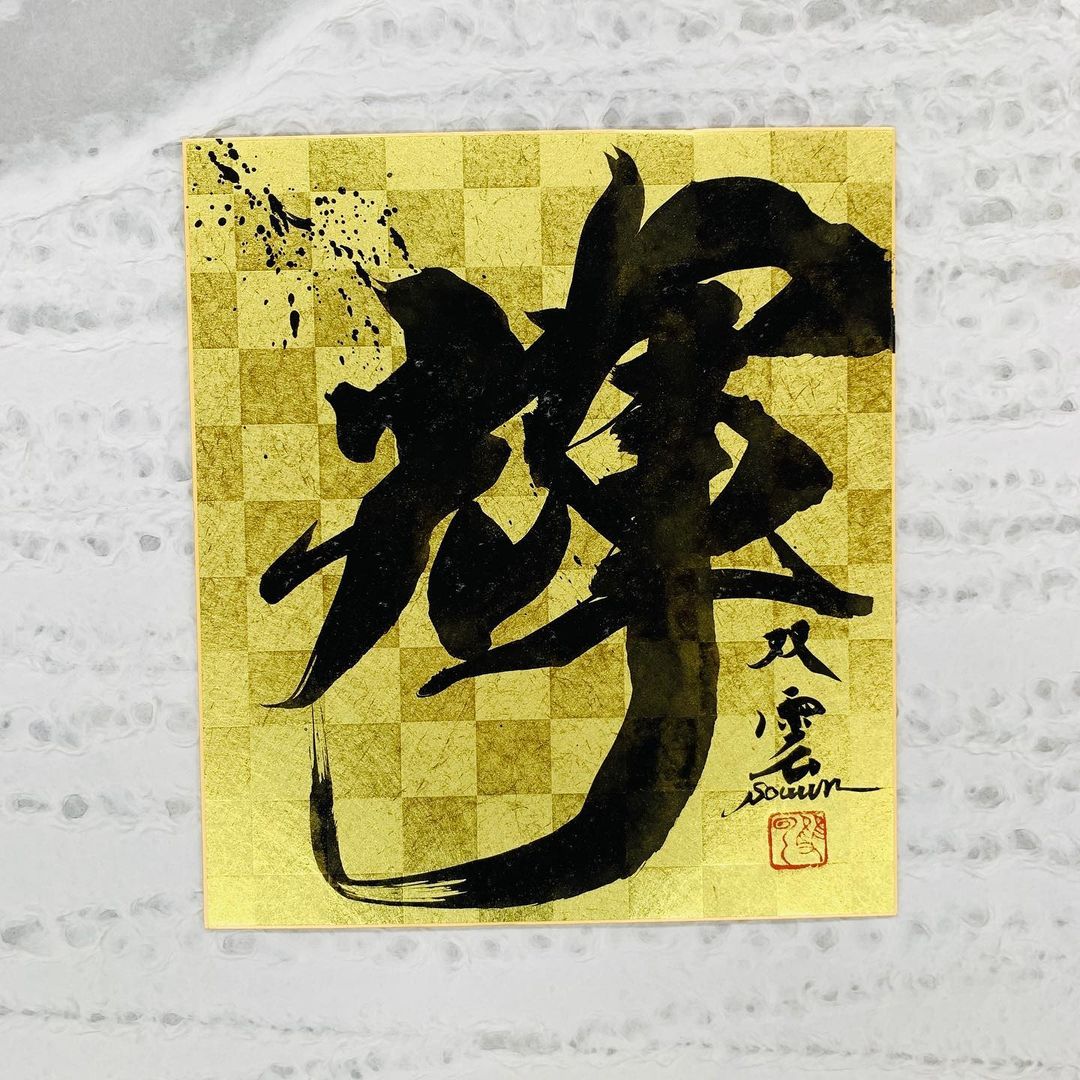 輝
双雲
souun